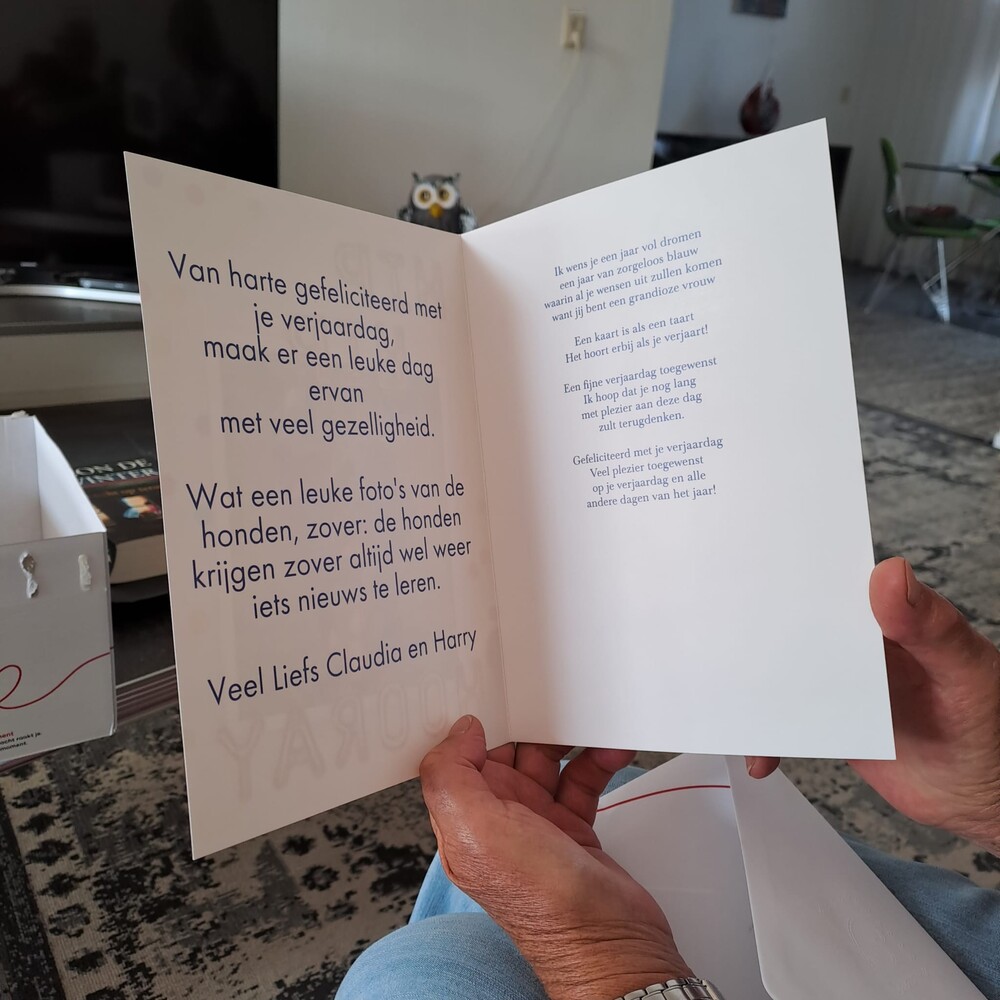 Van harte gefeliciteerd met
je verjaardag,
maak er een leuke dag
ervan
met veel gezelligheid.
Wat een leuke foto's van de
honden, zover: de honden
krijgen zover altijd wel weer
iets nieuws te leren.
Veel Liefs Claudia en Harry
HOORAY
Ik wens je een jaar vol dromen
een jaar van zorgeloos blauw
waarin al je wensen uit zullen komen
want jij bent een grandioze vrouw
Een kaart is als een taart
Het hoort erbij als je verjaart!
Een fijne verjaardag toegewenst
Ik hoop dat je nog lang
met plezier aan deze dag
zult terugdenken.
Gefeliciteerd met je verjaardag
Veel plezier toegewenst
op je verjaardag en alle
andere dagen van het jaar!